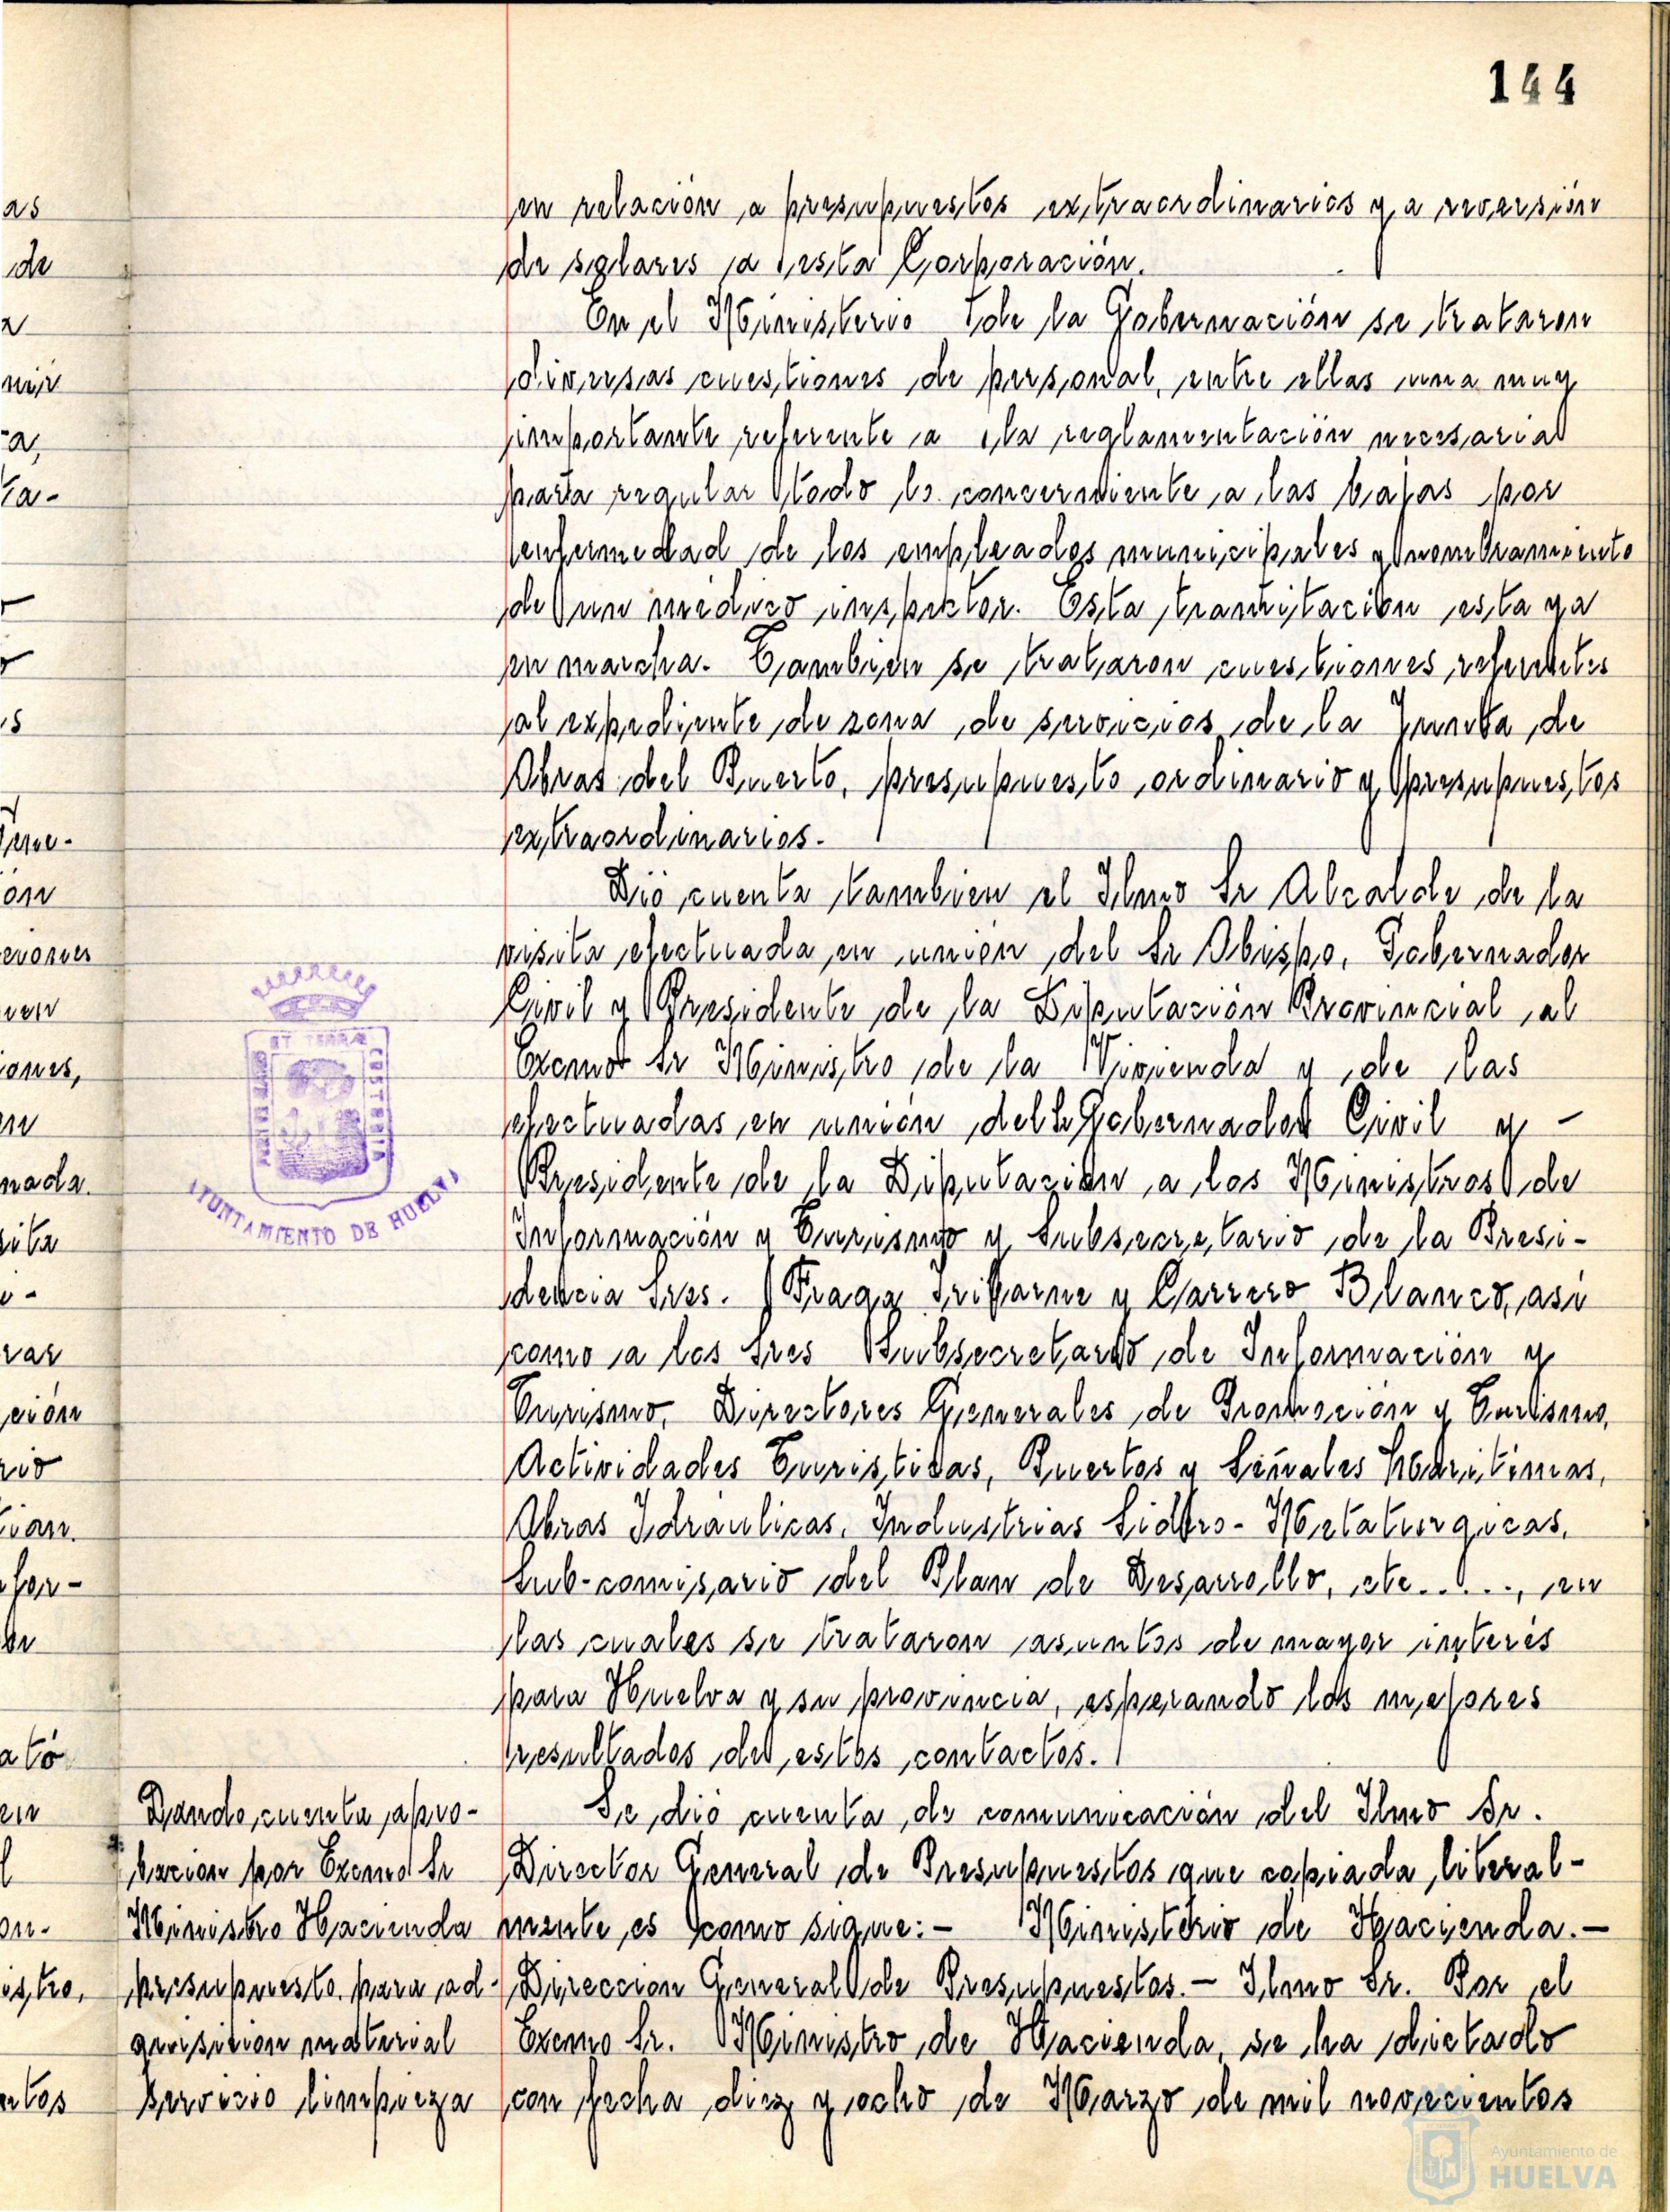 144
en relación a presupuestos extraordinarios y a reversión
de solares a esta Corporación.
En el Ministerio de la Gobernación se trataron
diversas cuestiones de personal, entre ellas una muy
importante referente a la reglamentación necesaria
para regular todo lo concerniente a las bajas por
enfermedad de los empleados municipales y nombramiento
de un médico inspector. Esta tramitación esta ya
en marcha. Tambien se trataron cuestiones referentes
al expediente de zona de servicios de la Junta de
Obras del Puerto, presupuesto ordinario y presupuestos
extraordinarios.
Dió cuenta tambien el Ilmo Sr Alcalde de la
visita efectuada en unión del Sr Obispo, Gobernador
Civil y Presidente de la Diputación Provincial al
Excmo Sr Ministro de la Vivienda y de las
efectuadas en unión del Gobernador Civil y -
Presidente de la Diputación a los Ministros de
Información y Turismo y Subsecretario de la Presi-
dencia Sres. Fraga Iribarne y Carrero Blanco, asi
como a los Sres Subsecretario de Información y
Turismo, Directores Generales de Promoción y Turismo,
Actividades Turisticas, Puertos y Señales Maritimas,
Obras Idráulicas, Industrias Sidero-Metalurgicas,
Sub-comisario del Plan de Desarrollo, etc....., en
las cuales se trataron asuntos de mayor interés
para Huelva y su provincia, esperando los mejores
resultados de estos contactos.
Dando cuenta apro-
bacion por Excmo Sr
Ministro Hacienda
presupuesto para ad-
quisicion material
servicio limpieza
Se dió cuenta de comunicación del Ilmo Sr.
Director General de Presupuestos que copiada literal-
mente es como sigue:- Ministerio de Hacienda.-
Direccion General de Presupuestos.- Ilmo Sr. Por el
Excmo Sr. Ministro de Hacienda, se ha dictado
con fecha diez y ocho de Marzo de mil novecientos
AYUNTAMIENTO DE HUELVA
Ayuntamiento de
HUELVA